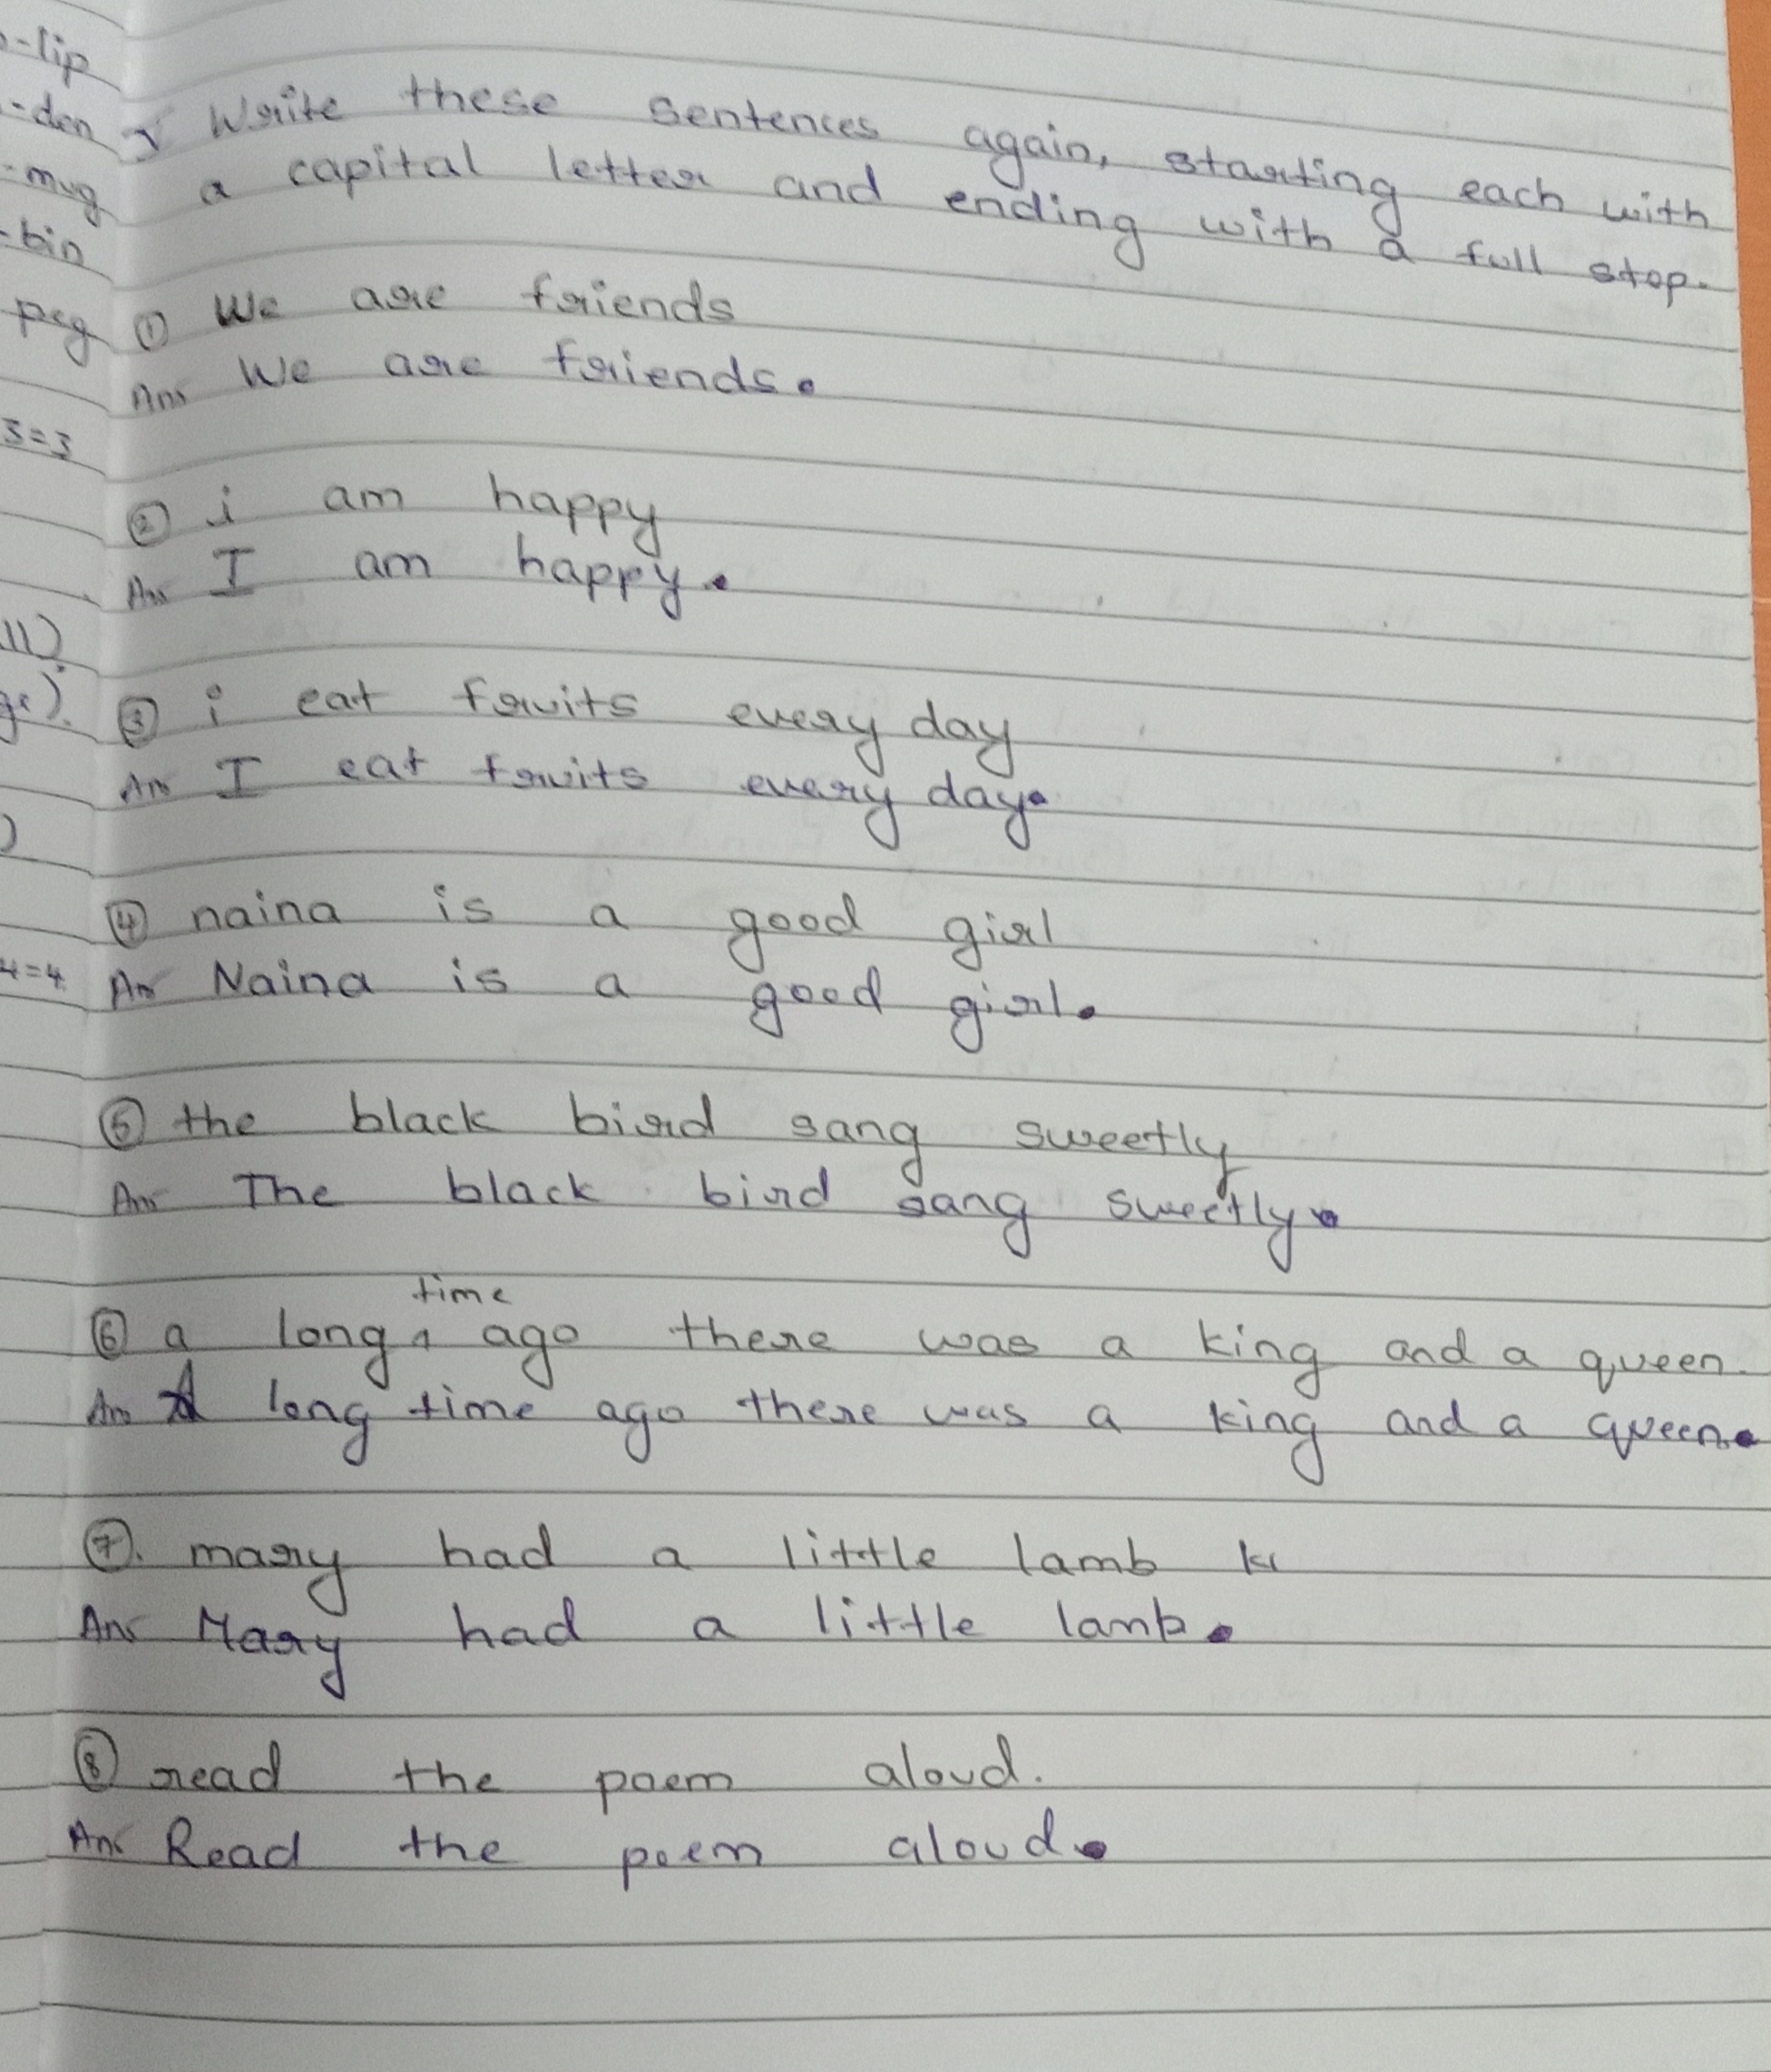 -lip
-den
-mug
-bin
peg
3=3
4=4
Write these sentences again, starting each with
a capital letter and ending with a full stop.
① We are friends
Ans We are friends.
② i am happy
Ans I am happy.
③ i eat fruits every day
Ans I eat fruits every day.
④ naina is a good girl
Ans Naina is a good girl.
⑤ the black bird sang sweetly
Ans The black bird sang sweetly.
time
⑥ a long ^ ago there was a king and a queen.
Ans A long time ago there was a king and a queen.
⑦. mary had a little lamb
Ans Mary had a little lamb.
⑧ read the poem aloud.
Ans Read the poem aloud.